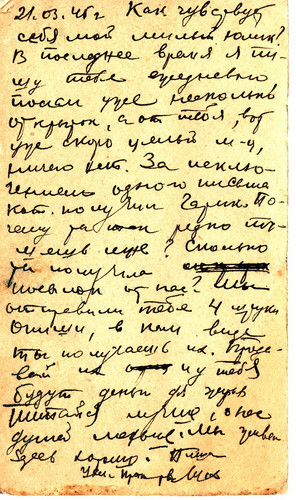 21.03.46 г Как чувствуе
себя мой милый Юлик?
В последнее время я пи-
шу тебе ежедневно
послал уже несколько
открыток, а от тебя, вот
уже скоро целый м-ц,
ничего нет. За исклю-
чением одного письма
кот. получил Гарик. По-
чему ты так редко пи-
шешь мне? Сколько
ты получила
посылок от нас? Мы
отправили тебе 4 штуки
Опиши, в каком виде
ты получаешь их.
их и у тебя
будут деньги для
Питайся лучше, о нас
не думай. Мы живем
здесь хорошо. Пиши